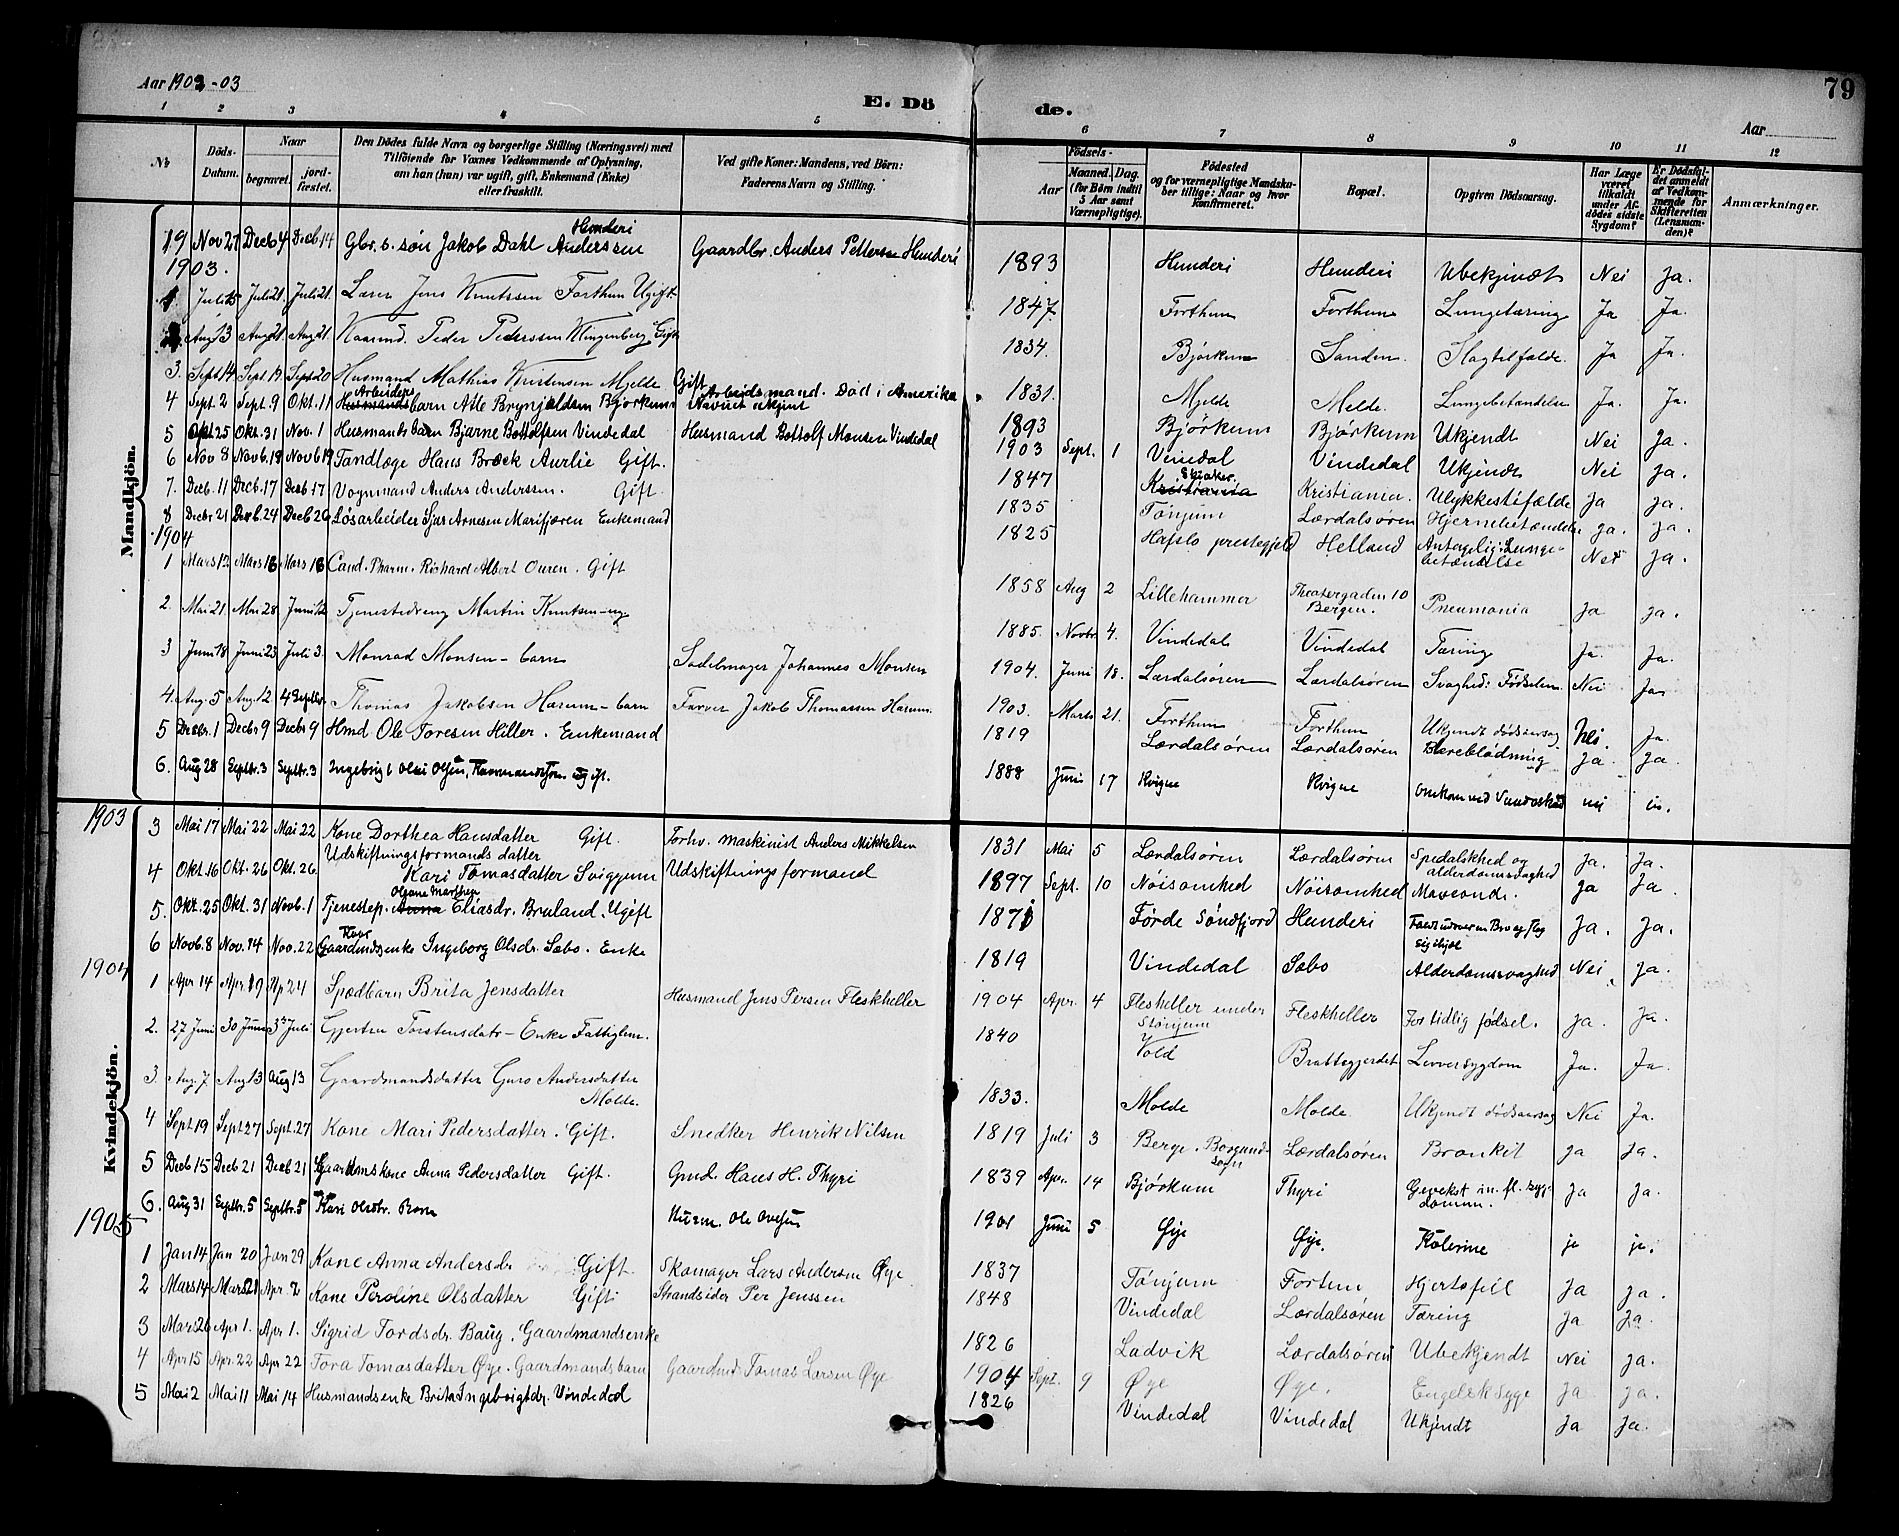 79
Aar 1902-03
E. Döde.
Aar
1 2 3 4 5 6 7 8 9 10 11 12
No
Döds-Datum.
Naar
begravet.
jordfæstet.
Den Dödes fulde Navn og borgerlige Stilling (Næringsvei) med
Tilföiende for Voxnes Vedkommende af Oplysning,
om han (hun) var ugift, gift, Enkemand (Enke)
eller fraskilt.
Ved gifte Koner: Mandens, ved Börn:
Faderens Navn og Stilling.
Födsels-
Aar
Maaned. Dag.
(for Börn indtil
5 Aar samt
Værnepligtige).
Födested
og for værnepligtige Mandskaber tillige: Naar og hvor
konfirmeret.
Bopæl.
Opgiven Dödsaarsag.
Har Læge
været
tilkaldt
under Afdödes sidste
Sygdom?
Er Dödsfaldet anmeldt
af Vedkommende for
Skifteretten
(Lensmanden)?
Anmærkninger.
Mandkjön.
19 Nov 27 Decb 4 Decb. 14 Gbr. b. søn Jakob Dahl Anderssen Hunderi Gaardbr. Anders Petterson Hunderi 1893 Hunderi Hunderi Ubekjendt Nei Ja.
1903.
1 Juli 15 Juli 21. Juli 21. Lærer Jens Knutssen Forthun Ugift 1847 Forthun Forthun Lungetæring Ja Ja.
Aug 13 Aug 21. Aug 21. Kaarmd. Peder Pederssen Klingenberg Gift 1834. Bjørkum Sanden. Slagtilfælde. Ja Ja.
3. Sept 14 Sept. 19. Sept 20 Husmand Mathias Kristensen Mjelde Gift 1831. Mjelde Melde. Lungebetændelse Ja. Ja.
4 Sept. 2 Sept. 9 Okt. 11 Arbeiders barn Atle Brynjeldsen Bjørkum Arbeidsmand. Død i Amerika Navnet ukjent 1893 Bjørkum Bjørkum Ukjendt Nei Ja.
5 Okt 25 Okt. 31 Nov. 1 Husmands barn Bjarne Bottolfsen Vindedal Husmand Bottolf Monsen Vindedal 1903 Sept. 1 Vindedal Vindedal Ukjendt Nei Ja.
6 Nov 8 Novb. 19 Novb 19 Tandlæge Hans Brock Aurlie Gift. 1847 Skiaker Kristiania Kristiania. Ulykkestilfælde Ja Ja.
7. Decb. 11 Decb 17 Decb 17 Vognmand Anders Anderssen. Gift. 1835 Tønjum Lærdalsøren Hjernebetændelse Ja. Ja.
8 Decbr 21 Decb. 24 Decb 26 Løsarbeider Sjur Arnesen Marifjæren Enkemand 1825 Hafslo prestegjeld Helland Antagelig Lungebetændelse Nei Ja.
1904
1 Mars 12 Mars 18 Mars 18 Cand. Pharm. Richard Albert Ouren. Gift 1858 Aug 2 Lillehammer Theatergaden 10 Bergen. Pneumonia Ja Ja.
2. Mai 21. Mai 28 Juni 12 Tjenestedreng Martin Knutsen ug 1885. Novbr. 4. Vindedal Vindedal Tæring Ja. Ja.
3 Juni 18 Juni 23 Juli 3. Monrad Monsen - barn Sadelmager Johannes Monsen 1904. Juni 18. Lærdalsøren Lærdalsøren Svaghed: Fødselen Nei Ja
4. Aug. 5 Aug. 12 4 Septbr. Thomas Jakobsen Hærum - barn Farver Jakob Thomassen Hærum. 1903. Marts 21. Forthun Forthun Ukjendt dødsaarsag Nei. Ja.
5 Decbr. 1 Decbr 9 Decbr 9 Hmd Ole Toresen Hiller. Enkemand 1819 Lærdalsøren Lærdalsøren Blæreblødning Ja. Ja.
6. Aug 28 Septbr. 3 Septbr. 3 Olai Olsen, ugift. 1888 Juni 17 Kvigne Kvigne nei
Kvindekjön.
1903
3 Mai 17 Mai 22 Mai 22 Kone Dorthea Hansdatter Gift. Forhv. maskinist Anders Mikkelsen 1831 Mai 5 Lærdalsøren Lærdalsøren Spedalskhed og alderdomssvaghed Ja. Ja.
4 Okt. 16 Okt. 26 Okt. 26. Udskiftningsformands datter Kari Tomasdatter Sviggum Udskiftningsformand 1897 Sept. 10 Nöisomhed Nöisomhed Maveonde. Ja Ja
5. Okt. 25 Okt. 31 Novb. 1 Tjenestep. Anna Olgane Marthea Eliasdr. Bruland. Ugift 1871 Førde Søndfjord Hunderi Faldt udover en Bro og slog sig ihjel Ja. Ja.
6 Novb. 8 Nov. 14 Nov. 22 Kaar Gaardmdsenke Ingeborg Olsdr. Sæbo. Enke 1819 Vindedal Sæbo Alderdomssvaghed Nei. Ja.
1904
1 Apr 14 Apr. 19 Ap 24 Spædbarn Brita Jensdatter Husmand Jens Persen Fleskheller 1904 Apr. 4 Fleskeller under Stønjum Fleskheller For tidlig fødsel. Ja. Ja.
2. 27 Juni 30 Juni 3 Juli Gjertru Torstensdatr - Enke Fattiglem. 1840 Vold Brattegjerdet Leversygdom Ja. Ja.
3. Aug. 7 Aug 13 Aug 13 Gaardmandsdatter Guro Andersdatter Molde. 1833. Molde Molde Ukjendt dødsaarsag Nei Ja.
4 Sept 19 Sept 27 Sept. 27 Kone Mari Pedersdatter. Gift. Snedker Henrik Nilsen 1819 Juli 3 Berge. Borgund sogn Lærdalsøren Bronkit Ja Ja.
5 Decb 15 Decb 21 Decb 21 Gaardmskone Anna Pedersdatter Gift. Gmd. Hans H. Thyri 1839 Apr. 14 Bjørkum Thyri Ja Ja.
6. Aug 31 Septbr. 5 Septbr. 5 Kari Olsdtr. Husm. Ole 1901 Juni 5 Øie Øie. Kolerine ja ja.
1905
1 Jan 14 Jan 20 Jan 29 Kone Anna Andersdr Gift. Skomager Lars Andersen Øye 1837 Tønjum Fortun Hjertefeil Ja Ja.
2 Mars 14 Mars 21 Apr. 2 Kone Peroline Olsdatter Gift. Strandsider Per Jenssen 1848 Vindedal Lærdalsøren Tæring Ja Ja.
3 Mars 26 Apr 1. Apr 1. Sigrid Tordsdr. Baug. Gaardmandsenke 1826 Ladvik Lærdalsøren Ubekjendt Nei Ja.
4 Apr 15 Apr. 22 Apr 22 Tora Tomasdatter Øye. Gaardmandsbarn Gaardmd. Tomas Larsen Øye 1904 Sept. 9 Øye Øye. Engelsk syge Ja Ja.
5 Mai 2 Mai 11 Mai 14 Husmandsenke Brita Ingebrigtdr. Vindedal 1826 Vindedal Vindedal Ukjendt Ja Ja.